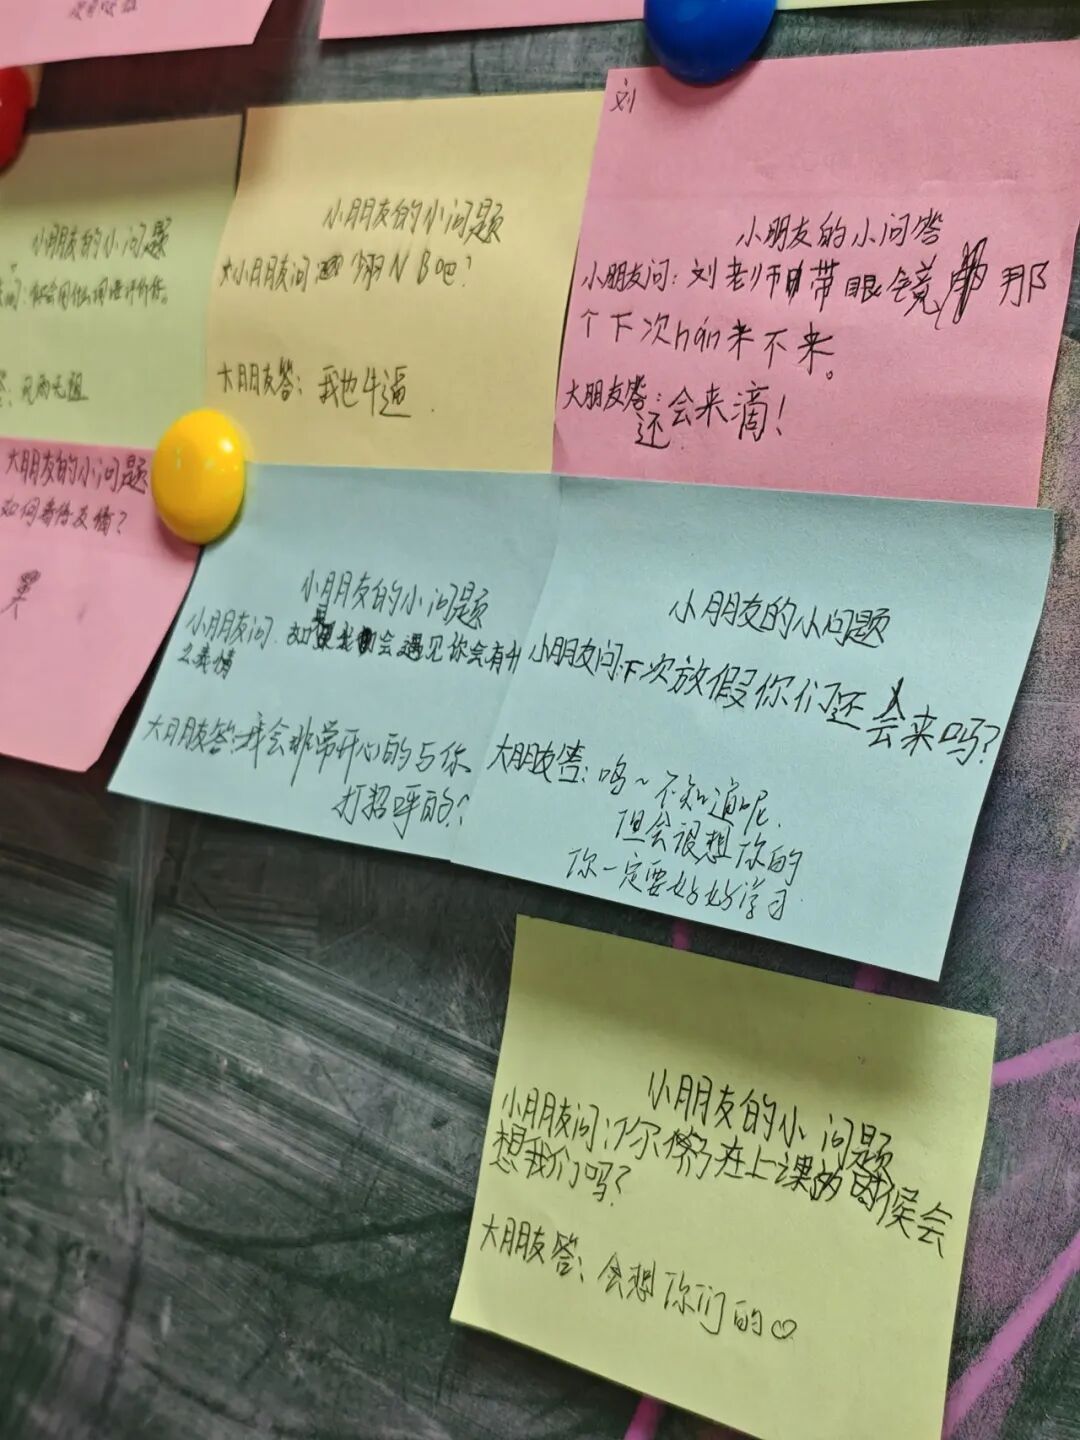 小朋友的小问题
小朋友的小问题
大小朋友问: 翔NB吧?
大朋友答: 我也牛逼.
刘
小朋友的小问答
小朋友问: 刘老师带眼镜 那
个下次hán来不来。
大朋友答:
还会来滴!
大朋友的小问题
如何看待友情?
小朋友的小问题
小朋友问: 会遇见你会有什
么表情
大朋友答: 我会非常开心的与你
打招呼的?
小朋友的小问题
小朋友问:下次放假你们还会来吗?
大朋友答: 呜~不知道呢.
但会很想你的
你一定要好好学习.
小朋友的小问题
小朋友问: 你们在上课的时候会
想我们吗?
大朋友答: 会想你们的♡